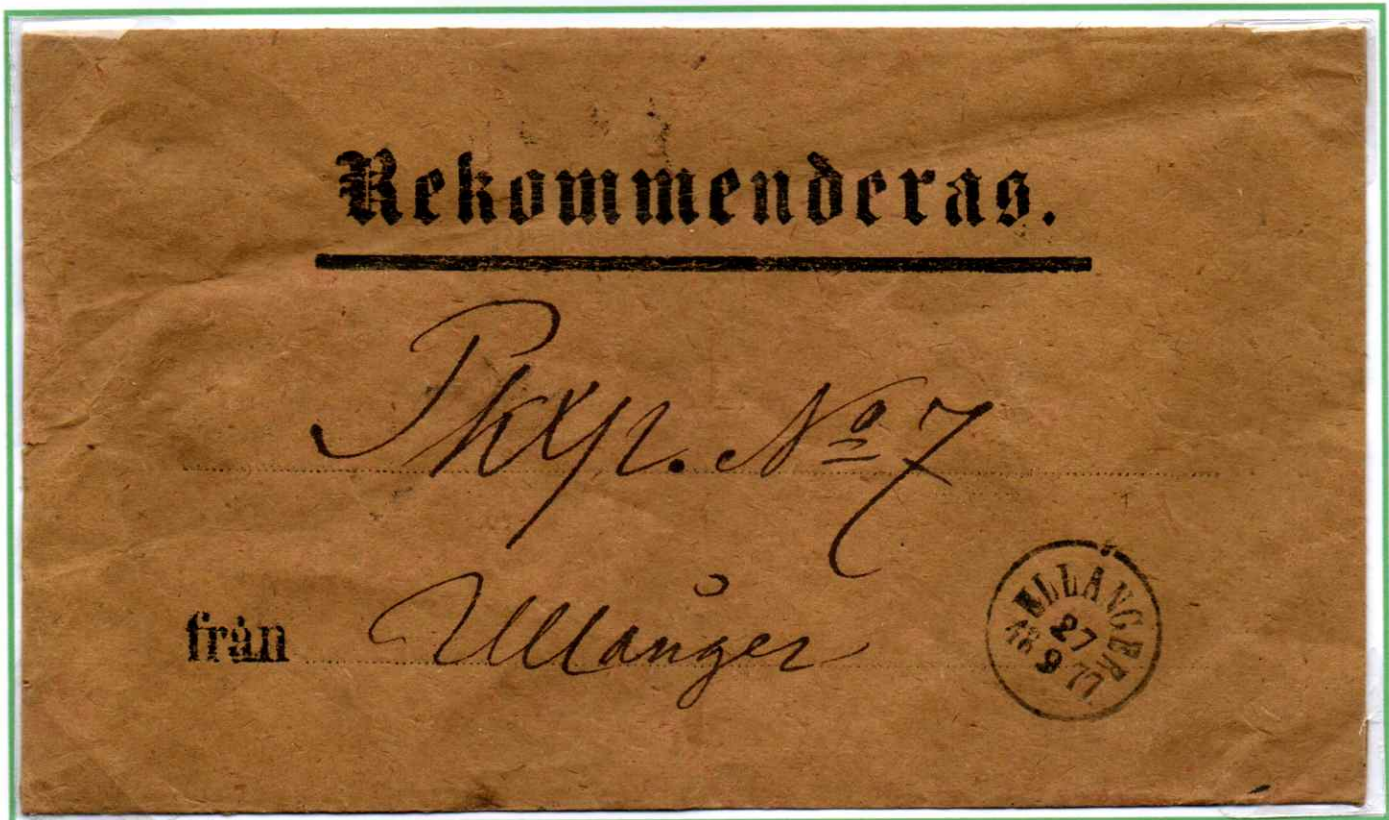 Rekommenderas.
Pkxp. No 7
från Ullånger
ULLÅNGER
27
9
18 77